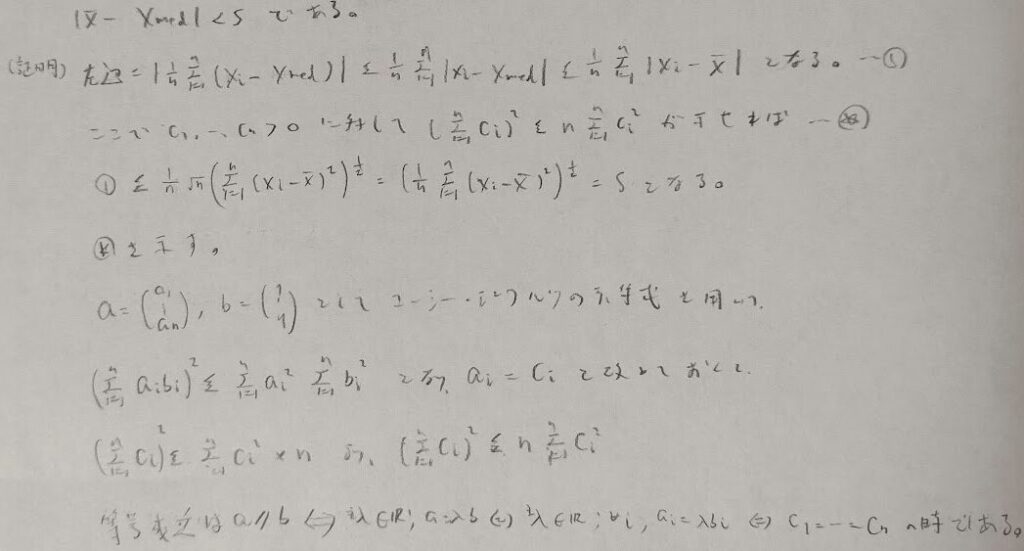 |x̄ - Xmed| < S である。
(証明) 左辺 = |1/n Σ_{i=1}^{n} (Xi - Xmed)| ≦ 1/n Σ_{i=1}^{n} |Xi - Xmed| ≦ 1/n Σ_{i=1}^{n} |Xi - x̄| となる。…①
ここで C1, …, Cn > 0 に対して (Σ_{i=1}^{n} Ci)² ≦ n Σ_{i=1}^{n} Ci² が示せれば …※
① ≦ 1/n √n (Σ_{i=1}^{n} (Xi - x̄)²)^{1/2} = (1/n Σ_{i=1}^{n} (Xi - x̄)²)^{1/2} = S となる。
※を示す。
a = (a1 ⋮ an), b = (1 ⋮ 1) として コーシー・シュワルツの不等式を用いて
(Σ_{i=1}^{n} aibi)² ≦ Σ_{i=1}^{n} ai² Σ_{i=1}^{n} bi² となり, ai = Ci と改めておくと,
(Σ_{i=1}^{n} Ci)² ≦ Σ_{i=1}^{n} Ci² × n より, (Σ_{i=1}^{n} Ci)² ≦ n Σ_{i=1}^{n} Ci²
等号成立は a // b ⇔ ∃λ∈ℝ; a = λb ⇔ ∃λ∈ℝ; ∀i, ai = λbi ⇔ C1 = … = Cn の時である。